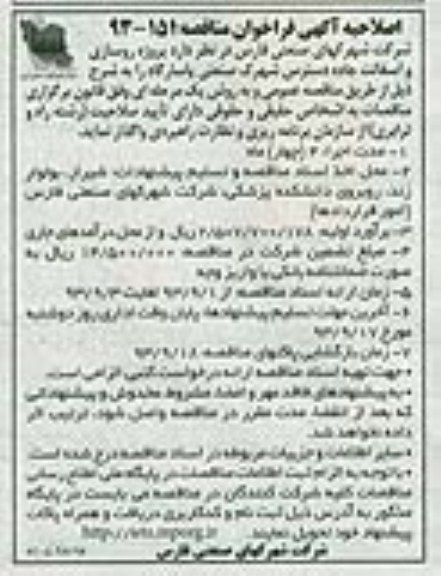 اصلاحیه آگهی فراخوان مناقصه ۱۵۱-۹۳
شرکت شهرکهای صنعتی فارس در نظر دارد پروژه روسازی
و آسفالت جاده دسترسی شهرک صنعتی پاسارگاد را به شرح
ذیل از طریق مناقصه عمومی و به روش یک مرحله ای وفق قانون برگزاری
مناقصات به اشخاص حقیقی و حقوقی دارای تأیید صلاحیت (رشته راه و
ترابری) از سازمان برنامه ریزی و نظارت راهبردی واگذار نماید.
۱- مدت اجرا: ۴ (چهار) ماه
۲- محل اخذ اسناد مناقصه و تسلیم پیشنهادات: شیراز، بولوار
زند، روبروی دانشکده پزشکی، شرکت شهرکهای صنعتی فارس
(امور قراردادها)
۳- برآورد اولیه: ۲/۵۰۷/۷۰۰/۱۷۸ ریال و از محل درآمدهای جاری
۴- مبلغ تضمین شرکت در مناقصه: ریال به
صورت ضمانتنامه بانکی یا واریز وجه
۵- زمان ارائه اسناد مناقصه: از ۹۳/۹/۱ لغایت ۹۳/۹/۳
۶- آخرین مهلت تسلیم پیشنهادها: پایان وقت اداری روز دوشنبه
مورخ ۹۳/۹/۱۷
۷- زمان بازگشایی پاکتهای مناقصه: ۹۳/۹/۱۸
• جهت تهیه اسناد مناقصه ارائه درخواست کتبی الزامی است.
• به پیشنهادهای فاقد مهر و امضا، مشروط، مخدوش و پیشنهاداتی
که بعد از انقضا، مدت مقرر در مناقصه واصل شود، ترتیب اثر
داده نخواهد شد.
• سایر اطلاعات و جزییات مربوطه در اسناد مناقصه درج شده است.
• با توجه به الزام ثبت اطلاعات مناقصات در پایگاه ملی اطلاع رسانی
مناقصات کلیه شرکت کنندگان در مناقصه می بایست در پایگاه
مذکور به آدرس ذیل ثبت نام و کد کاربری دریافت و همراه پاکات
پیشنهاد خود تحویل نمایند. http://iets.mporg.ir
شرکت شهرکهای صنعتی فارس